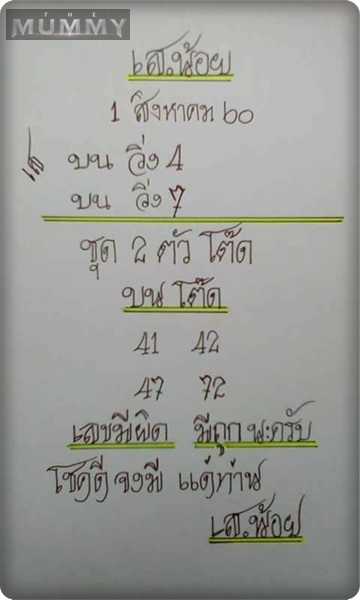 THE
MUMMY
เส.น้อย
1 สิงหาคม ๖๐
เส
บน วิ่ง 4
บน วิ่ง 7
ชุด 2 ตัว โต๊ด
บน โต๊ด
41 42
47 72
เลขมีผิด มีถูก นะครับ
โชคดี จงมี แด่ท่าน
เส.น้อย